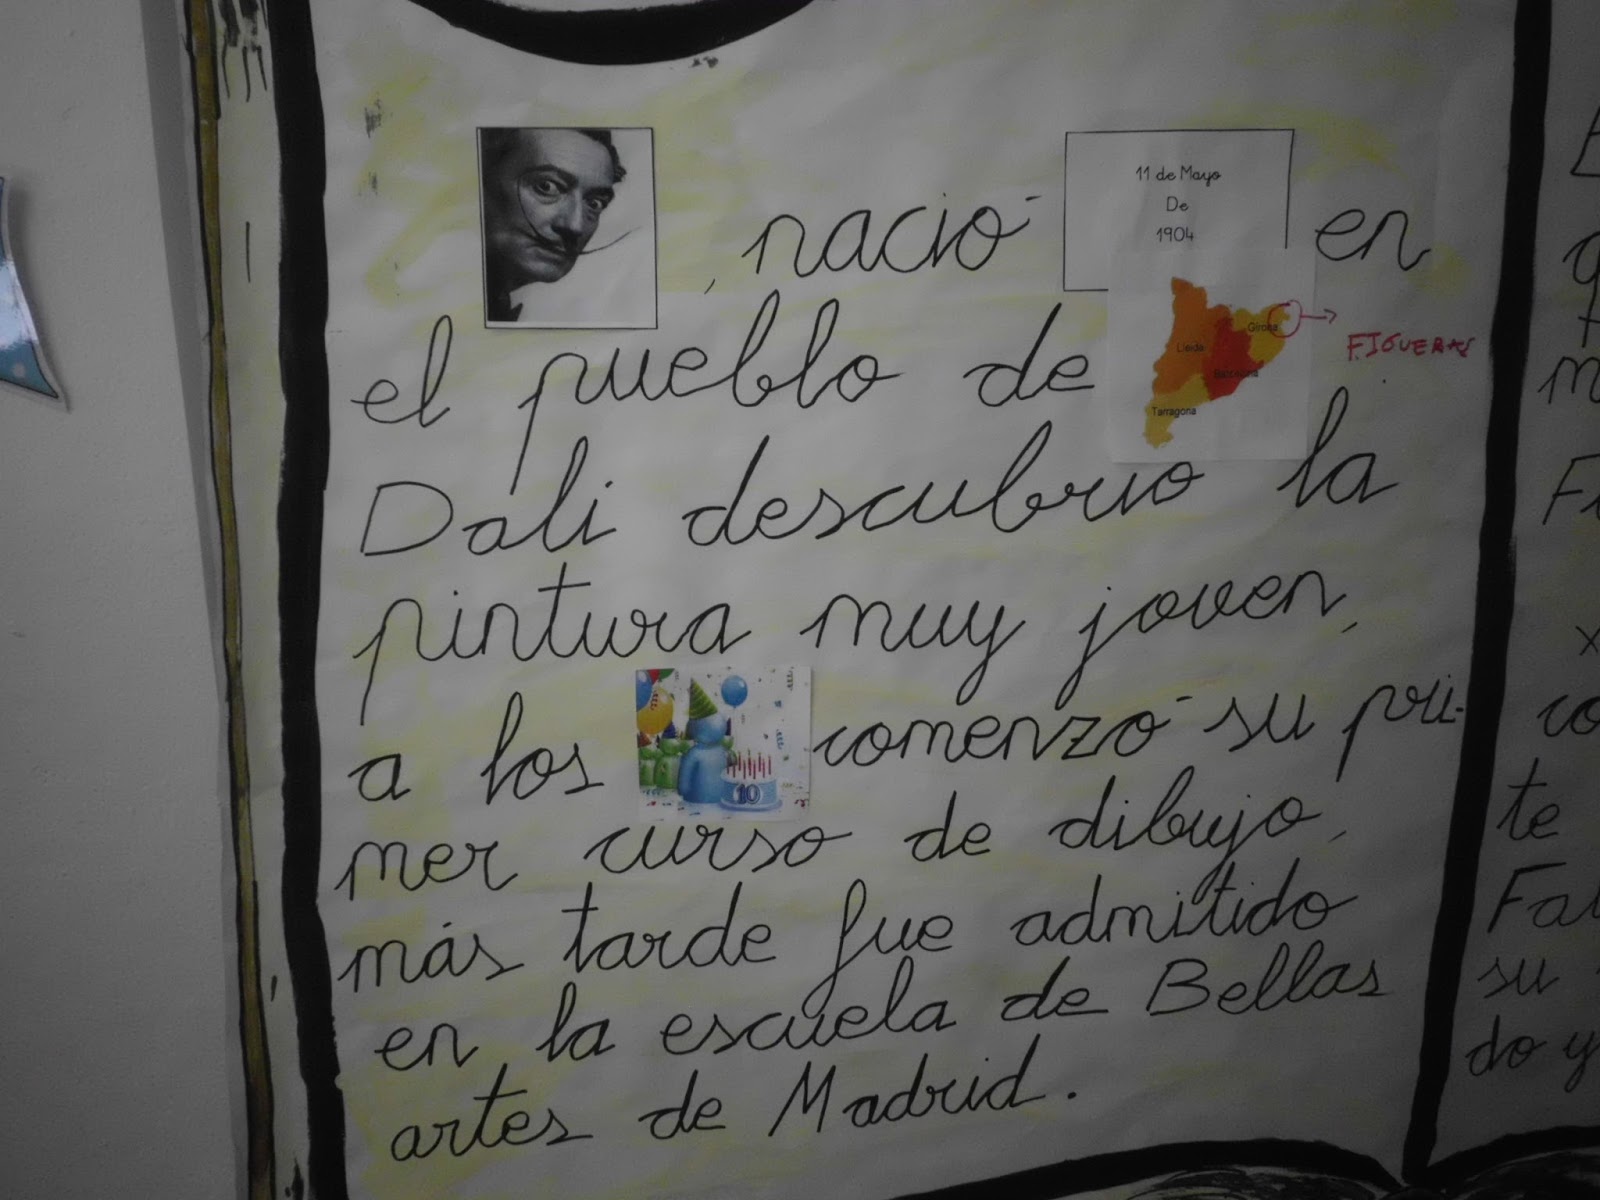 11 de Mayo
De
1904
, nació en
el pueblo de
Girona
Lleida
Barcelona
Tarragona
FIGUERAS
Dali descubrio la
pintura muy joven,
a los comenzó su pri-
10
mer curso de dibujo,
más tarde fue admitido
en la escuela de Bellas
artes de Madrid.
te
su
do y